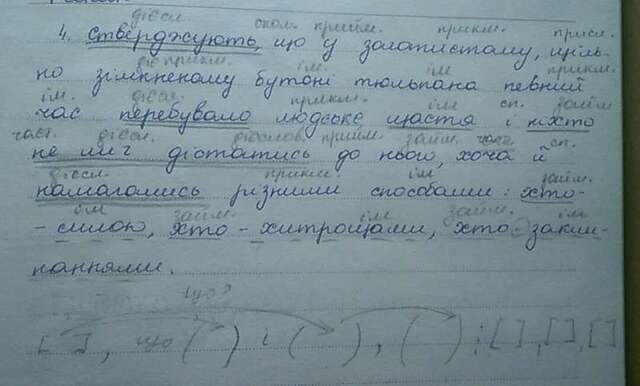 дієсл. спол. прийм. прикм. присл.
4. Стверджують, що у золотистому, щіль-
дієприкм. ім. ім. прикм.
но зімкненому бутоні тюльпана певний
ім. дієсл. прикм. ім сп. займ
час перебувало людське щастя і ніхто
част. дієсл. дієслов. прийм займ. част. сп.
не міг дістатись до нього, хоча й
дієсл прикм. ім займ.
намагались різними способами: хто-
ім займ. ім займ. ім
- силою, хто - хитрощами, хто - закли-
наннями.
що?
[ ], що ( ) і ( ), ( ) : [ ], [ ], [ ]